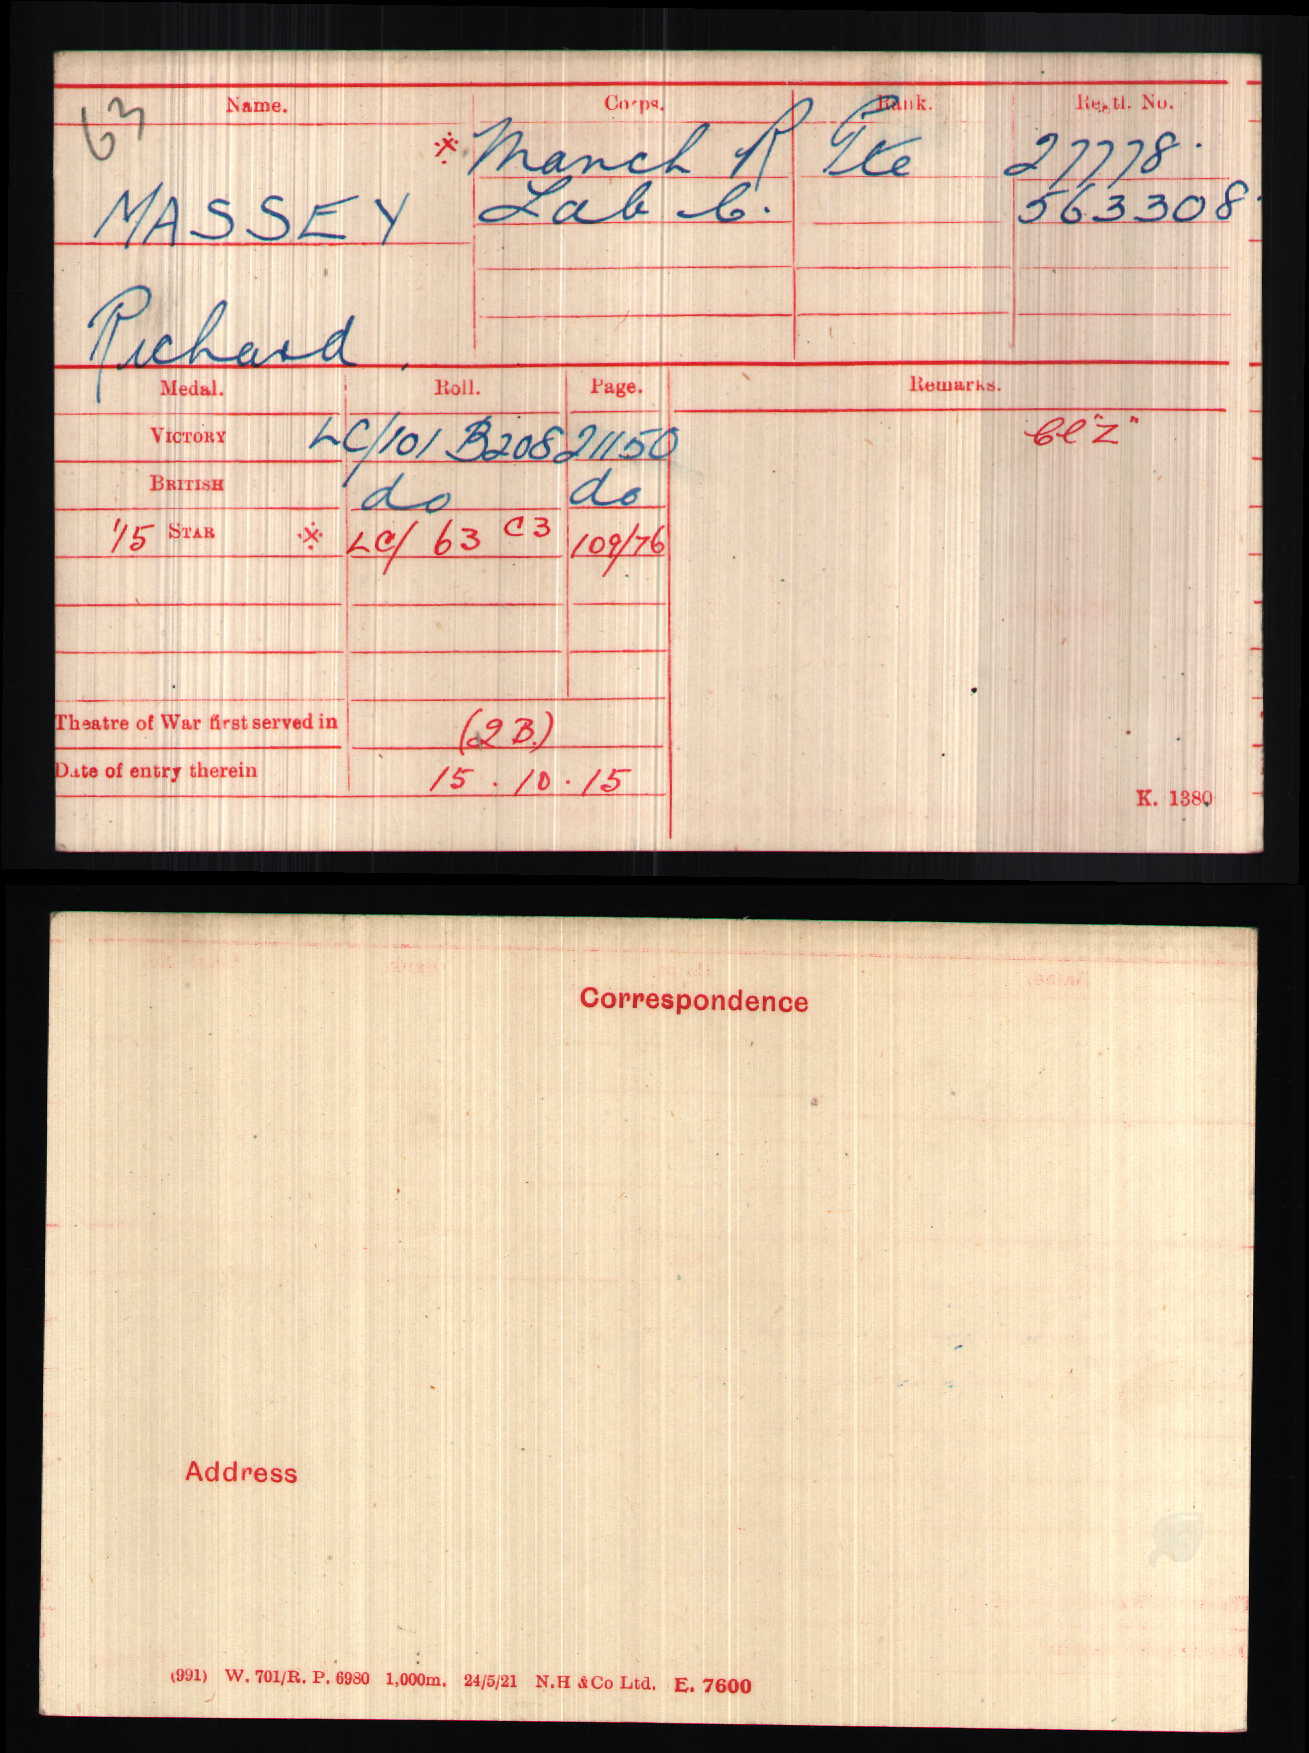 63
Name. Corps. Rank. Regtl. No.
※ Manch R Pte 27778.
MASSEY Lab C. 563308.
Richard.
Medal. Roll. Page. Remarks.
VICTORY LC/101 B208 21150 Cl "Z"
BRITISH do do
'15 STAR ※ LC/ 63 C3 109/76
Theatre of War first served in (2B.)
Date of entry therein 15.10.15
K. 1380
Correspondence
Address
(991) W. 701/R. P. 6980 1,000m. 24/5/21 N.H & Co Ltd. E. 7600